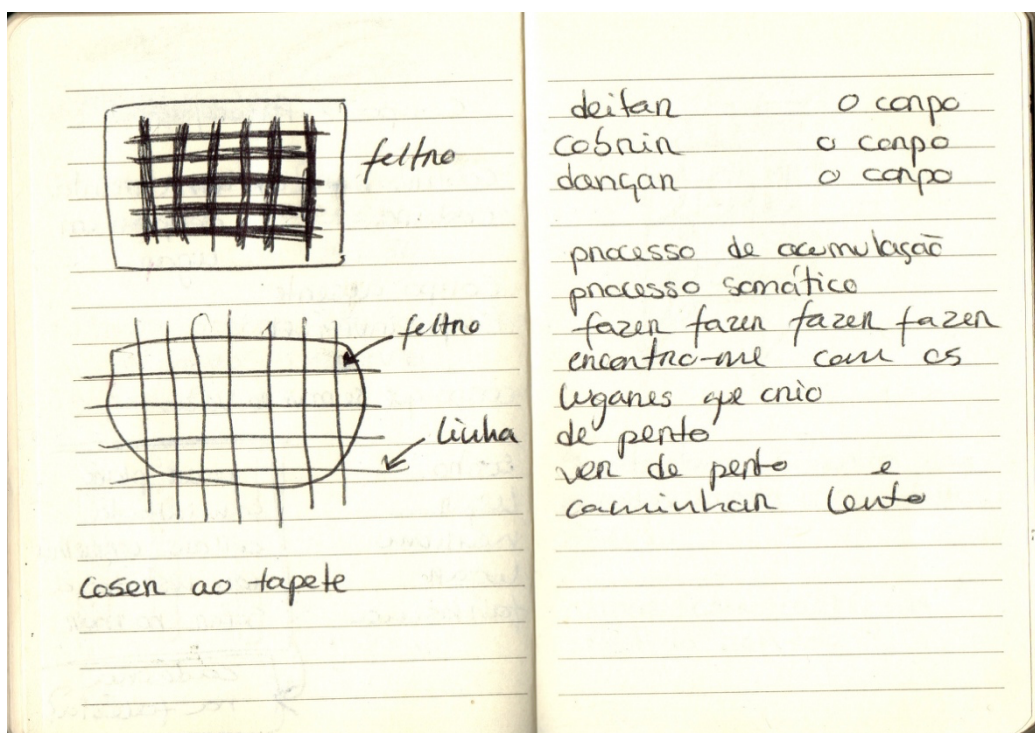 feltro
feltro
linha
coser ao tapete
deitar o corpo
cobrir o corpo
dançar o corpo
processo de acumulação
processo somático
fazer fazer fazer fazer
encontro-me com os
lugares que crio
de perto
ver de perto e
caminhar lento